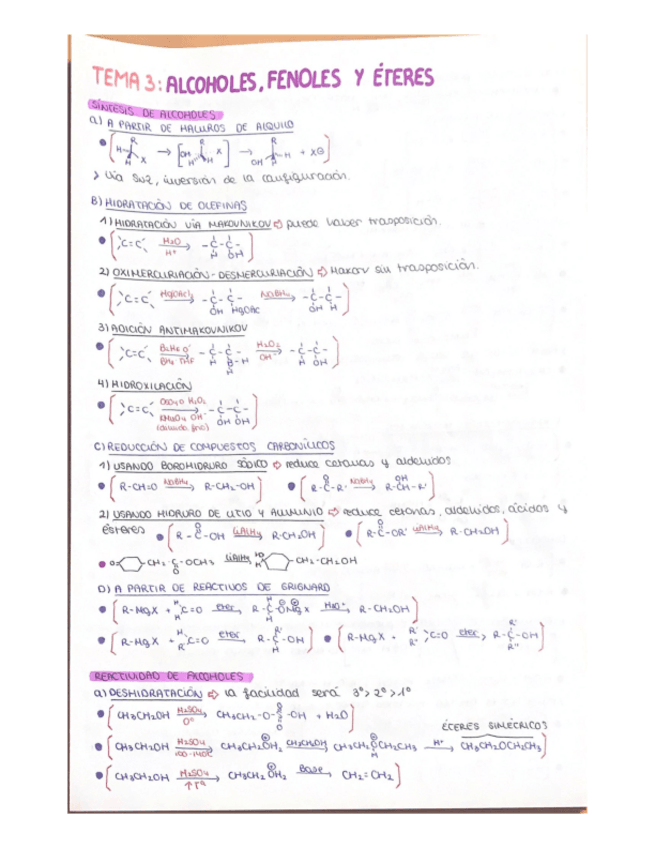 TEMA 3: ALCOHOLES, FENOLES Y ÉTERES
SÍNTESIS DE ALCOHOLES
a) A PARTIR DE HALUROS DE ALQUILO
→ [ ] → + X⊖
> Vía SN2, inversión de la configuración.
B) HIDRATACIÓN DE OLEFINAS
1) HIDRATACIÓN VÍA MAKOVNIKOV ⇨ puede haber trasposición.
C=C H2O H+ → -C-C- H OH
2) OXIMERCURIACIÓN-DESMERCURIACIÓN ⇨ Makov sin trasposición.
C=C Hg(OAc)2 → -C-C- OH HgOAc NaBH4 → -C-C- OH H
3) ADICIÓN ANTIMAKOVNIKOV
C=C B2H6 o BH3 THF → -C-C- H B-H H H2O2 OH- → -C-C- H OH
4) HIDROXILACIÓN
C=C OsO4 o H2O2 KMnO4 OH- → -C-C- OH OH
C) REDUCCIÓN DE COMPUESTOS CARBONÍLICOS
1) USANDO BOROHIDRURO SÓDICO ⇨ reduce cetonas y aldehidos
R-CH=O NaBH4 → R-CH2-OH R-C-R' O NaBH4 → R-CH-R' OH
2) USANDO HIDRURO DE LITIO Y ALUMINIO ⇨ reduce cetonas, aldehidos, ácidos y
ésteres R-C-OH O LiAlH4 → R-CH2OH R-C-OR' O LiAlH4 → R-CH2OH
O= -CH2-C-OCH3 O LiAlH4 → HO H -CH2-CH2OH
D) A PARTIR DE REACTIVOS DE GRIGNARD
R-MgX + H H C=O eter → R-C-O⊖Mg⊕X H H H3O+ → R-CH2OH
R-MgX + H R' C=O eter → R-C-OH R' H R-MgX + R' R'' C=O eter → R-C-OH R' R''
REACTIVIDAD DE ALCOHOLES
a) DESHIDRATACIÓN ⇨ la facilidad será 3º > 2º > 1º
CH3CH2OH H2SO4 0º → CH3CH2-O-S-OH O O + H2O
ÉTERES SIMÉTRICOS
CH3CH2OH H2SO4 100-140ºC → CH3CH2OH2 ⊕ CH3CH2OH → CH3CH2OCH2CH3 ⊕ H H+ → CH3CH2OCH2CH3
CH3CH2OH H2SO4 ↑Tª → CH3CH2OH2 ⊕ Base → CH2=CH2